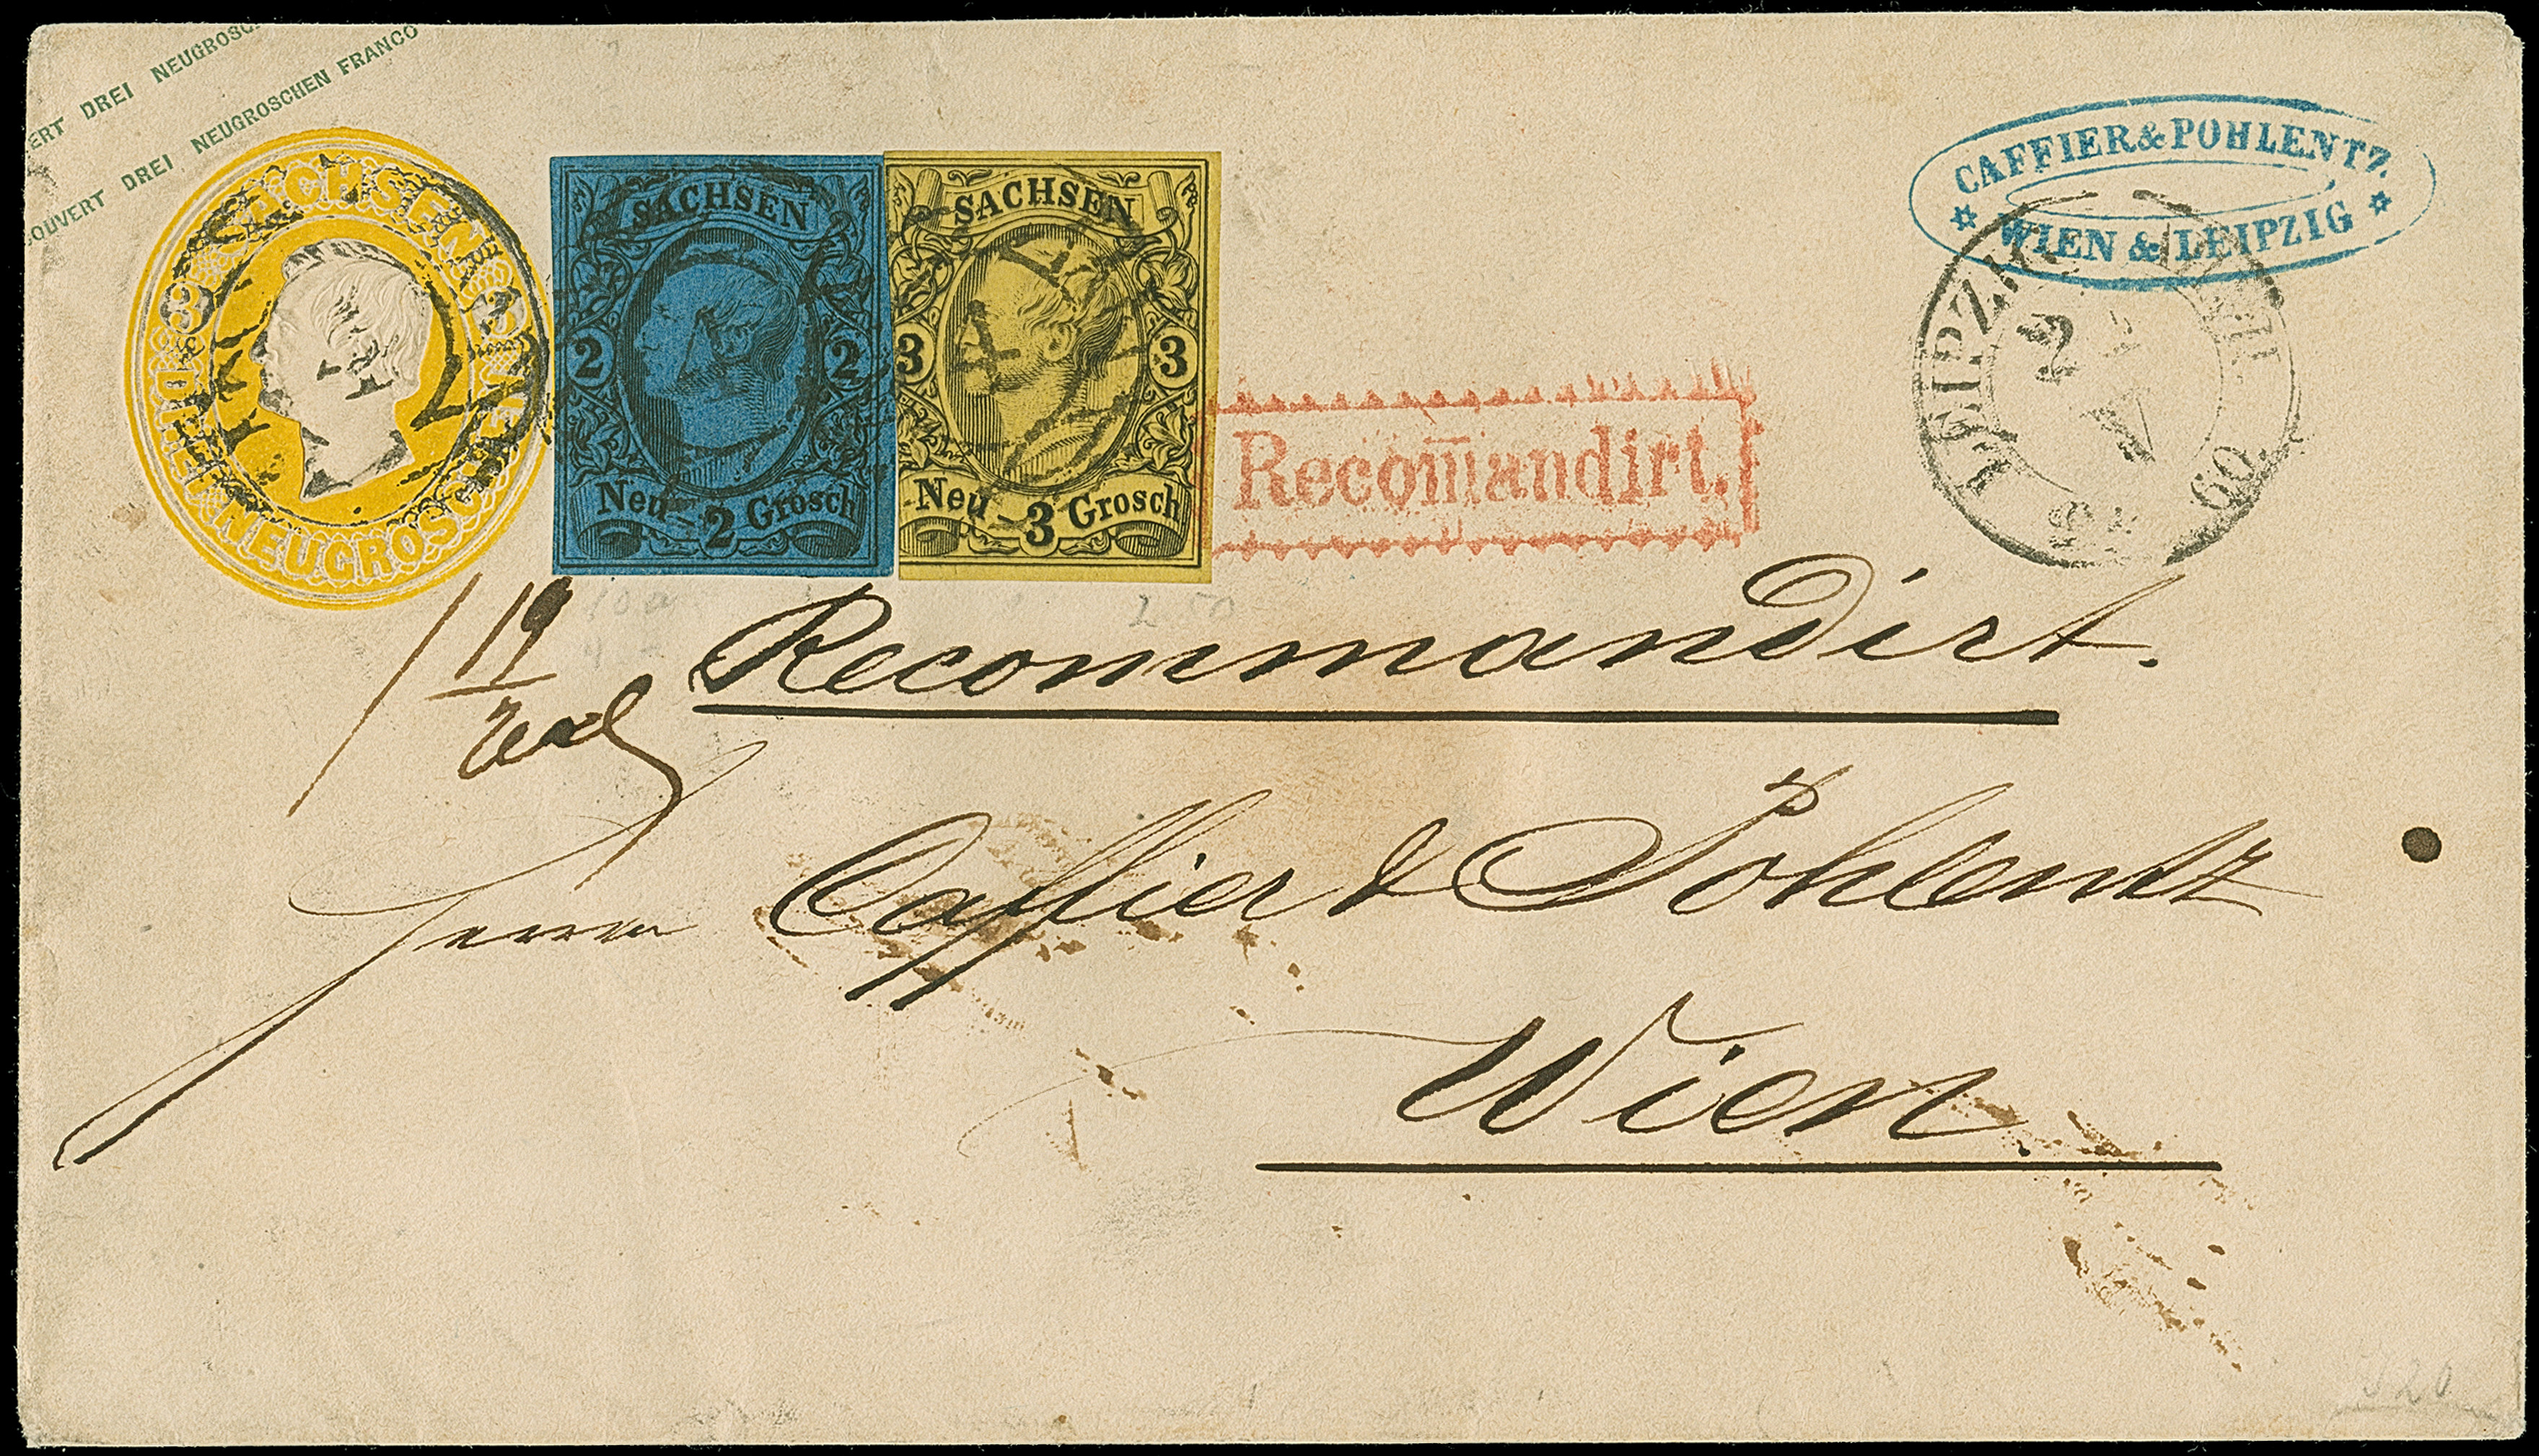 DREI NEUGROSC
COUVERT DREI NEUGROSCHEN FRANCO
SACHSEN
3 3
DREI NEUGROSCHEN
SACHSEN
2 2
Neu-2 Grosch
SACHSEN
3 3
Neu-3 Grosch
CAFFIER&POHLENTZ.
WIEN & LEIPZIG
LEIPZIG
60.
Recom̄andirt.
19
Recommandirt.
Herrn Caffier & Pohlentz
Wien.